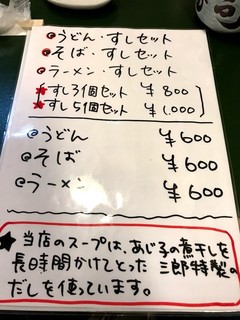 ◎うどん・すしセット
◎そば・すしセット
◎ラーメン・すしセット
★すし3個セット ¥800
★すし5個セット ¥1,000
◎うどん ¥600
◎そば ¥600
◎ラーメン ¥600
★当店のスープは、あじ子の煮干しを
長時間かけてとった 三郎特製の
だしを使っています。